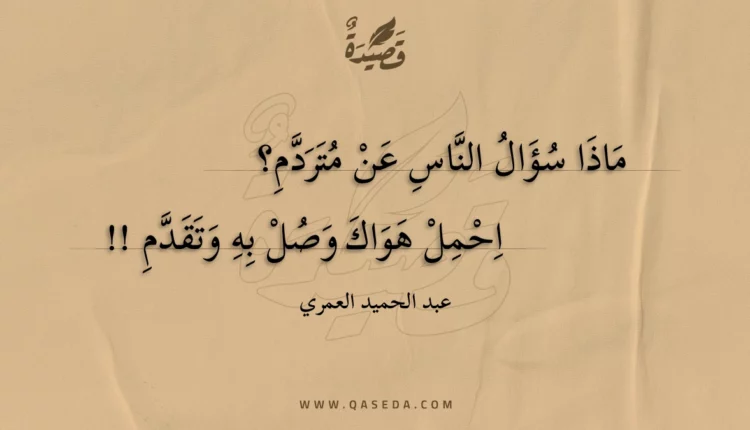 قَصِيدَةٌ
مَاذَا سُؤَالُ النَّاسِ عَنْ مُتَرَدَّمِ؟
اِحْمِلْ هَوَاكَ وَصُلْ بِهِ وَتَقَدَّمِ !!
عبد الحميد العمري
WWW.QASEDA.COM